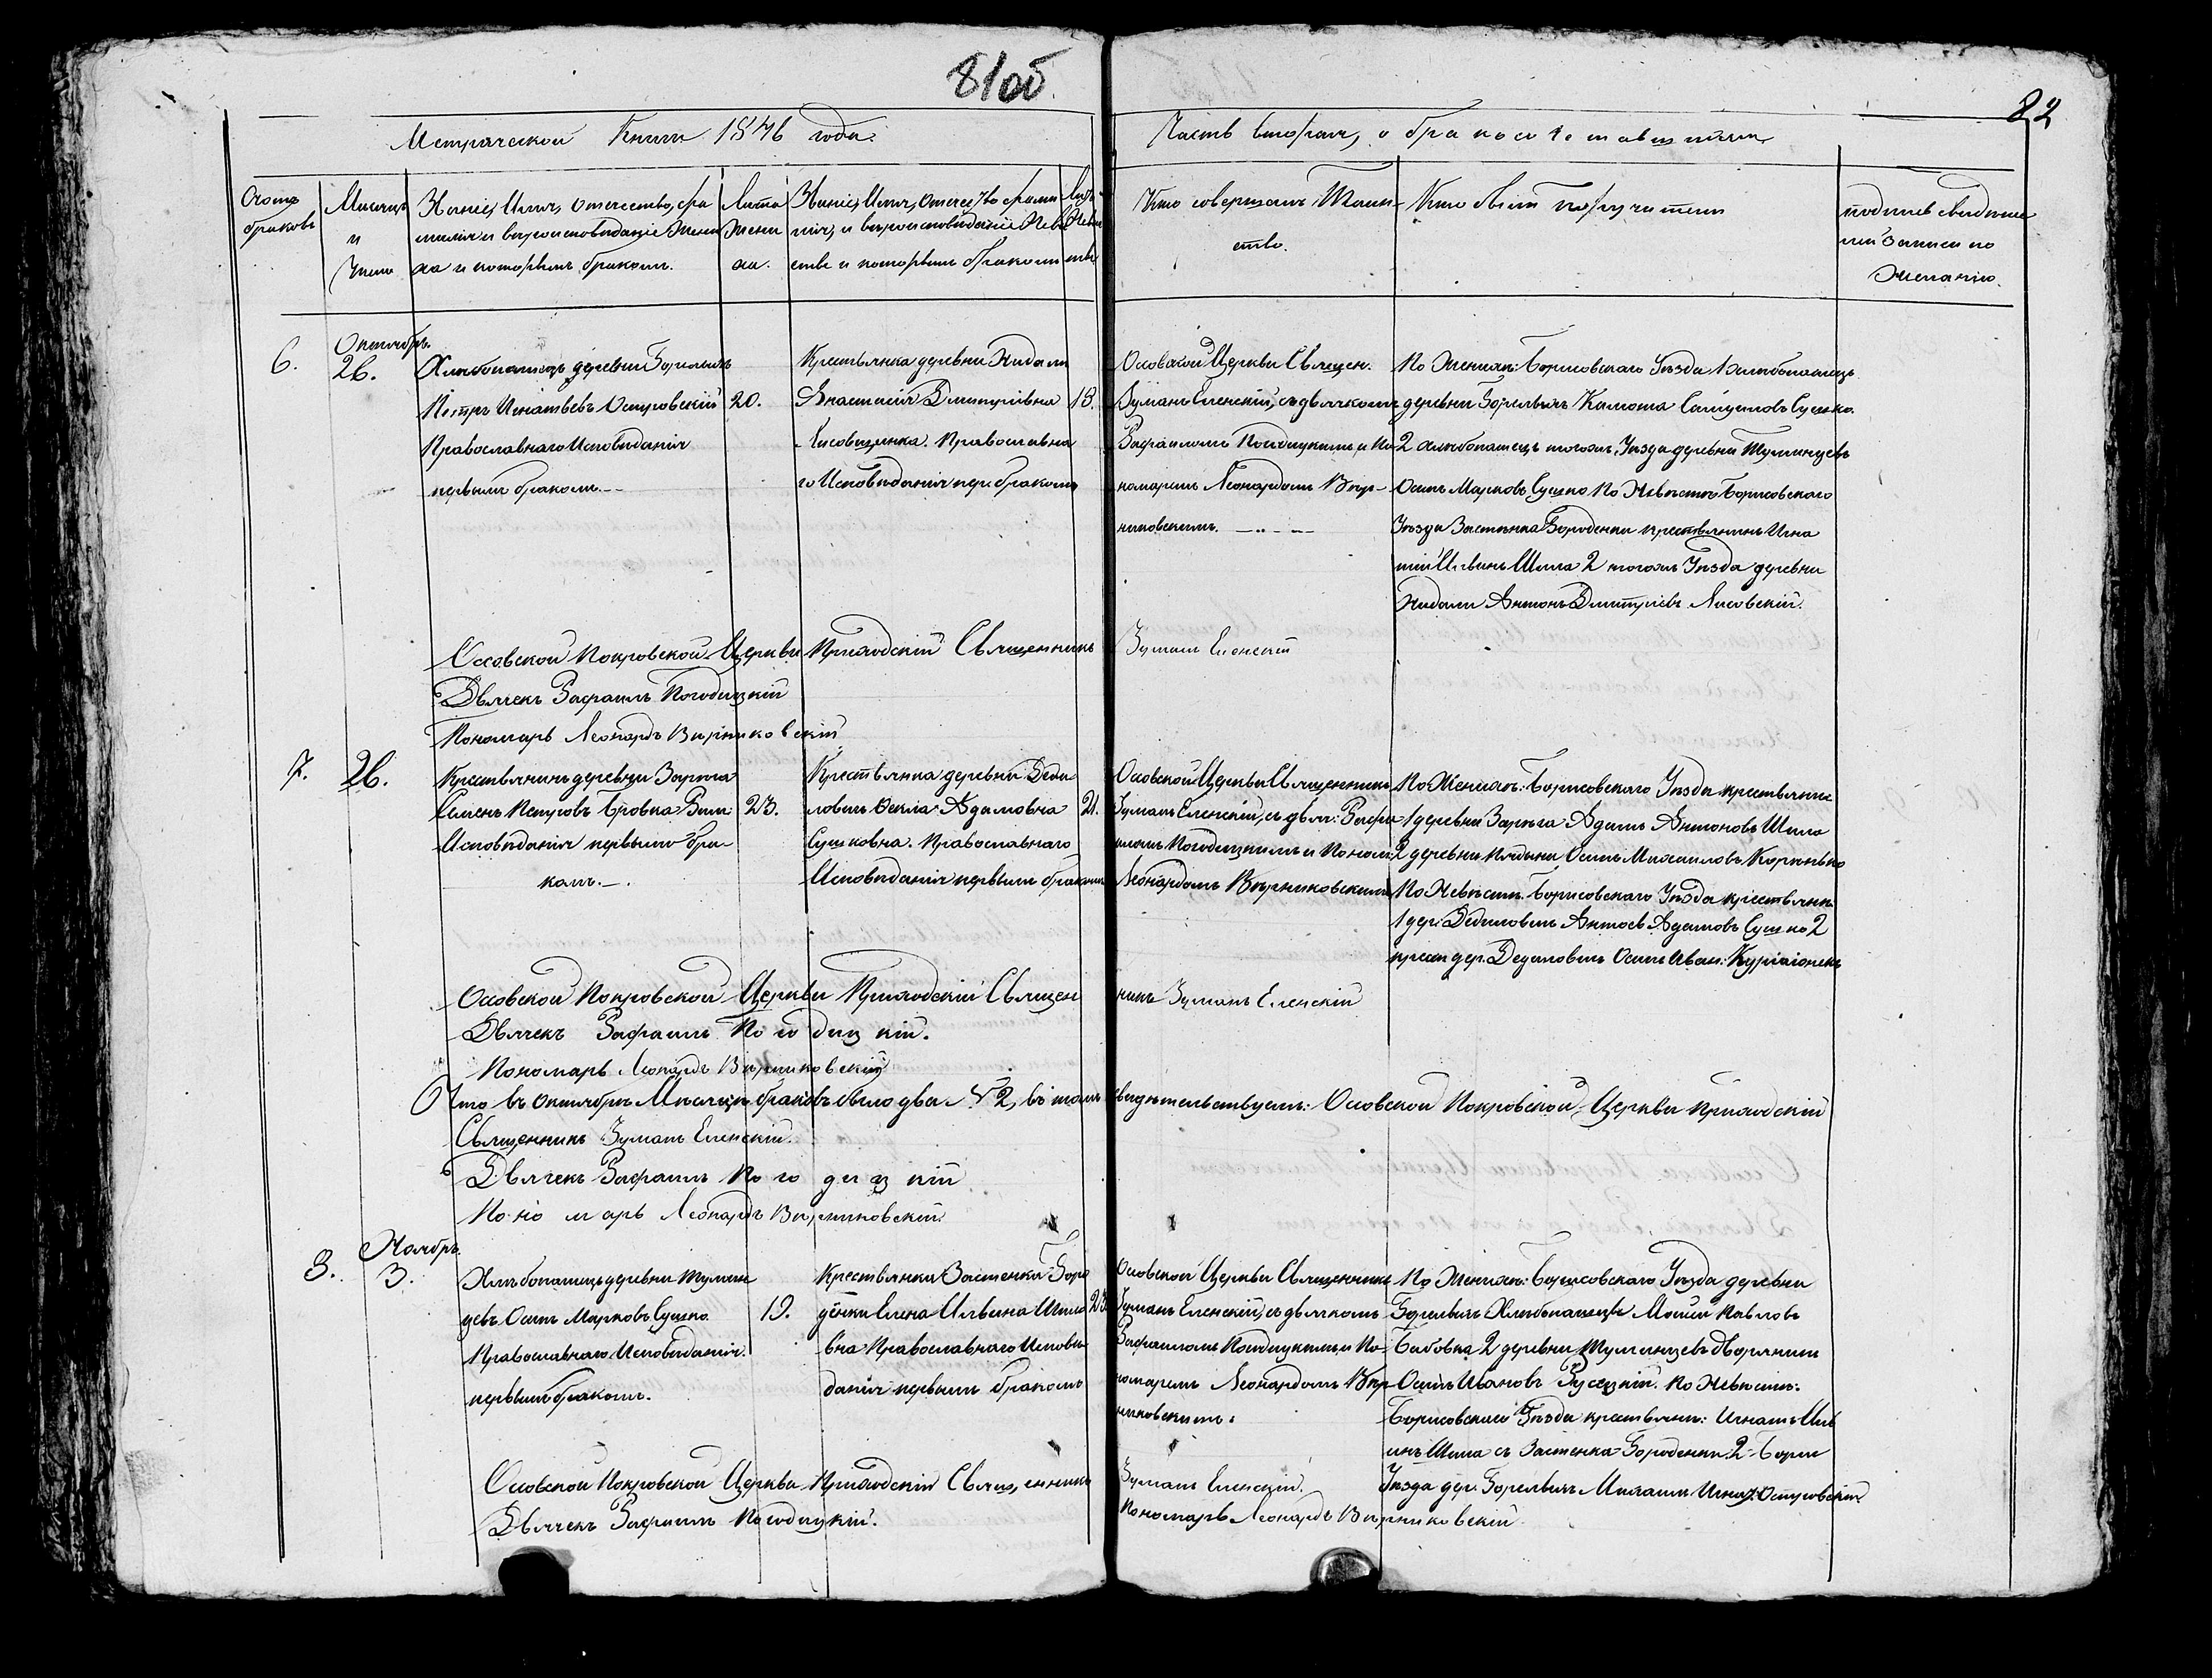 81об
82
Метрической Книги 1846 года.
Часть вторая, о бракосочетавшихся
Счотъ
браковъ
Месяцъ
и
Число
Званіе, Имя, Отечество, фа
милія и вероисповеданіе Жени
ха и которымъ бракомъ.
Лѣта
Жени
ха.
Званіе, Имя, Отечество фами
лія, и вероисповѣданіе Неве
сты и которымъ бракомъ
Лѣта
Невѣ
сты
Кто совершалъ Таин-
ство.
Кто были поручители
подпись свидѣте
лей записи по
желанію.
6.
Октябрь.
26.
Хлѣбопашецъ деревни Горелыхъ
Петръ Игнатьевъ Островскій
Православнаго Исповѣданія
первымъ бракомъ.
20.
Крестьянка деревни Нидали
Анастасія Дмитріевна
Лисовщинка. Православна
го Исповѣданія пер. бракомъ
18.
Осовской Церкви Священ.
Зуманъ Еленскій, съ дьячкомъ
Рафаиломъ Погодицкимъ и По
номаремъ Леонардомъ Вѣр-
никовскимъ.
По Женихѣ: Борисовскаго Уѣзда 1 хлѣбопашецъ
деревни Горелыхъ Сушко.
2 хлѣбопашецъ тогожъ Уѣзда деревни Туминцевъ
Осипъ Марковъ Сушко По Невѣстѣ Борисовского
Уѣзда Застѣнка Бороденки крестьянинъ Игна
тій Ильинъ Шила 2 тогожъ Уѣзда деревни
Нидали Антонъ Дмитріевъ Лисовскій.
Осовской Покровской Церкви Приходскій Священникъ Зуманъ Еленскій
Дьячекъ Рафаилъ Погодицкій
Пономарь Леонардъ Вѣрниковскій
7.
26.
Крестьянинъ деревни
Семенъ Петровъ Бровка
Исповѣданія первымъ бра-
комъ.
23.
Крестьянка деревни Деди
ловичъ Фекла Адамовна
Сушковна. Православнаго
Исповѣданія первымъ бракомъ
21.
Осовской Церкви Священникъ
Зуманъ Еленскій, съ дьяч: Рафа
иломъ Погодицкимъ и Поном:
Леонардомъ Вѣрниковскимъ
По Женихѣ: Борисовского Уѣзда крестьяне
1 деревни Адамъ Антоновъ Шила
2 деревни Осипъ Михаиловъ
По Невѣстѣ. Борисовского Уѣзда крестьяне
1 дер: Дедиловичъ Адамовъ Сушко 2
крест. дер. Дедиловичъ Осипъ Иван:
Осовской Покровской Церкви Приходскій Священ никъ Зуманъ Еленскій
Дьячекъ Рафаилъ Погодицкій.
Пономарь Леонардъ Вѣрниковскій
Что въ октябрѣ Мѣсяцѣ браковъ было два № 2, въ томъ свидѣтельствуемъ: Осовской Покровской Церкви Приходскій
Священникъ Зуманъ Еленскій.
Дьячекъ Рафаилъ Погодицкій
Пономарь Леонардъ Вѣрниковскій.
8.
Ноябрь.
3.
Хлѣбопашецъ деревни Тумин
цевъ Осипъ Марковъ Сушко
Православнаго Исповѣданія.
первымъ бракомъ.
19.
Крестьянка Застенка Боро
дёнки Елена Ильина Шило
вна Православнаго Исповѣ
данія первымъ бракомъ
23
Осовской Церкви Священникъ
Зуманъ Еленскій, съ дьячкомъ
Рафаиломъ Погодицкимъ и По-
номаремъ Леонардомъ Вѣр
никовскимъ.
По Женихѣ: Борисовскаго Уѣзда деревни
Горелыхъ Хлѣбопашецъ Павловъ
Бабовка 2 деревни Туминцевъ дворянинъ
Осипъ Ивановъ По Невѣстѣ:
Борисовскаго Уѣзда крестьян: Игнатъ Иль
инъ Шила съ Застенка Бороденки. 2 Борис
Уѣзда дер. Горелыхъ Игнат: Островскій
Осовской Покровской Церкви Приходскій Священникъ Зуманъ Еленскій.
Дьячекъ Рафаилъ Погодицкій. Пономарь Леонардъ Вѣрниковскій